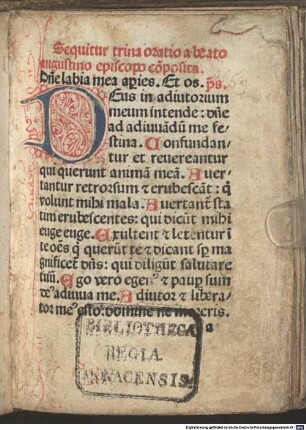 Sequitur trina oratio a beato
augustino episcopo cōposita.
Dñe labia mea aꝑies. Et os. ps.
DEus in adiutorium
meum intende: dñe
ad adiuuādū me fe-
stina. Confundan-
tur et reuereantur
qui querunt animā meā. Auer-
tantur retrorsum ⁊ erubescāt: q̄
volunt mihi mala. Auertant̄ sta
tim erubescentes: qui dicūt mihi
euge euge. Exultent ⁊ letentur ī
te oēs q̄ querūt te ⁊ dicant sꝑ ma
gnificet̄ dñs: qui diligūt salutare
tuū. Ego vero egenꝰ ⁊ pauꝑ sum
deꝰ adiuua me. Adiutor ⁊ libera-
tor meꝰ esto: domine ne moreris.
BIBLIOTHECA
REGIA
MONACENSIS